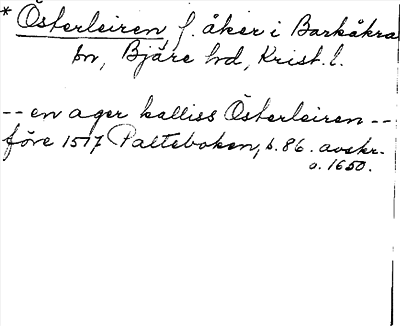 * Österleiren, f. åker i Barkåkra
sn, Bjäre hd, Krist. l.
-- en ager kalliss Österleiren --
före 1517 Palteboken, s. 86. avskr.
o. 1650.